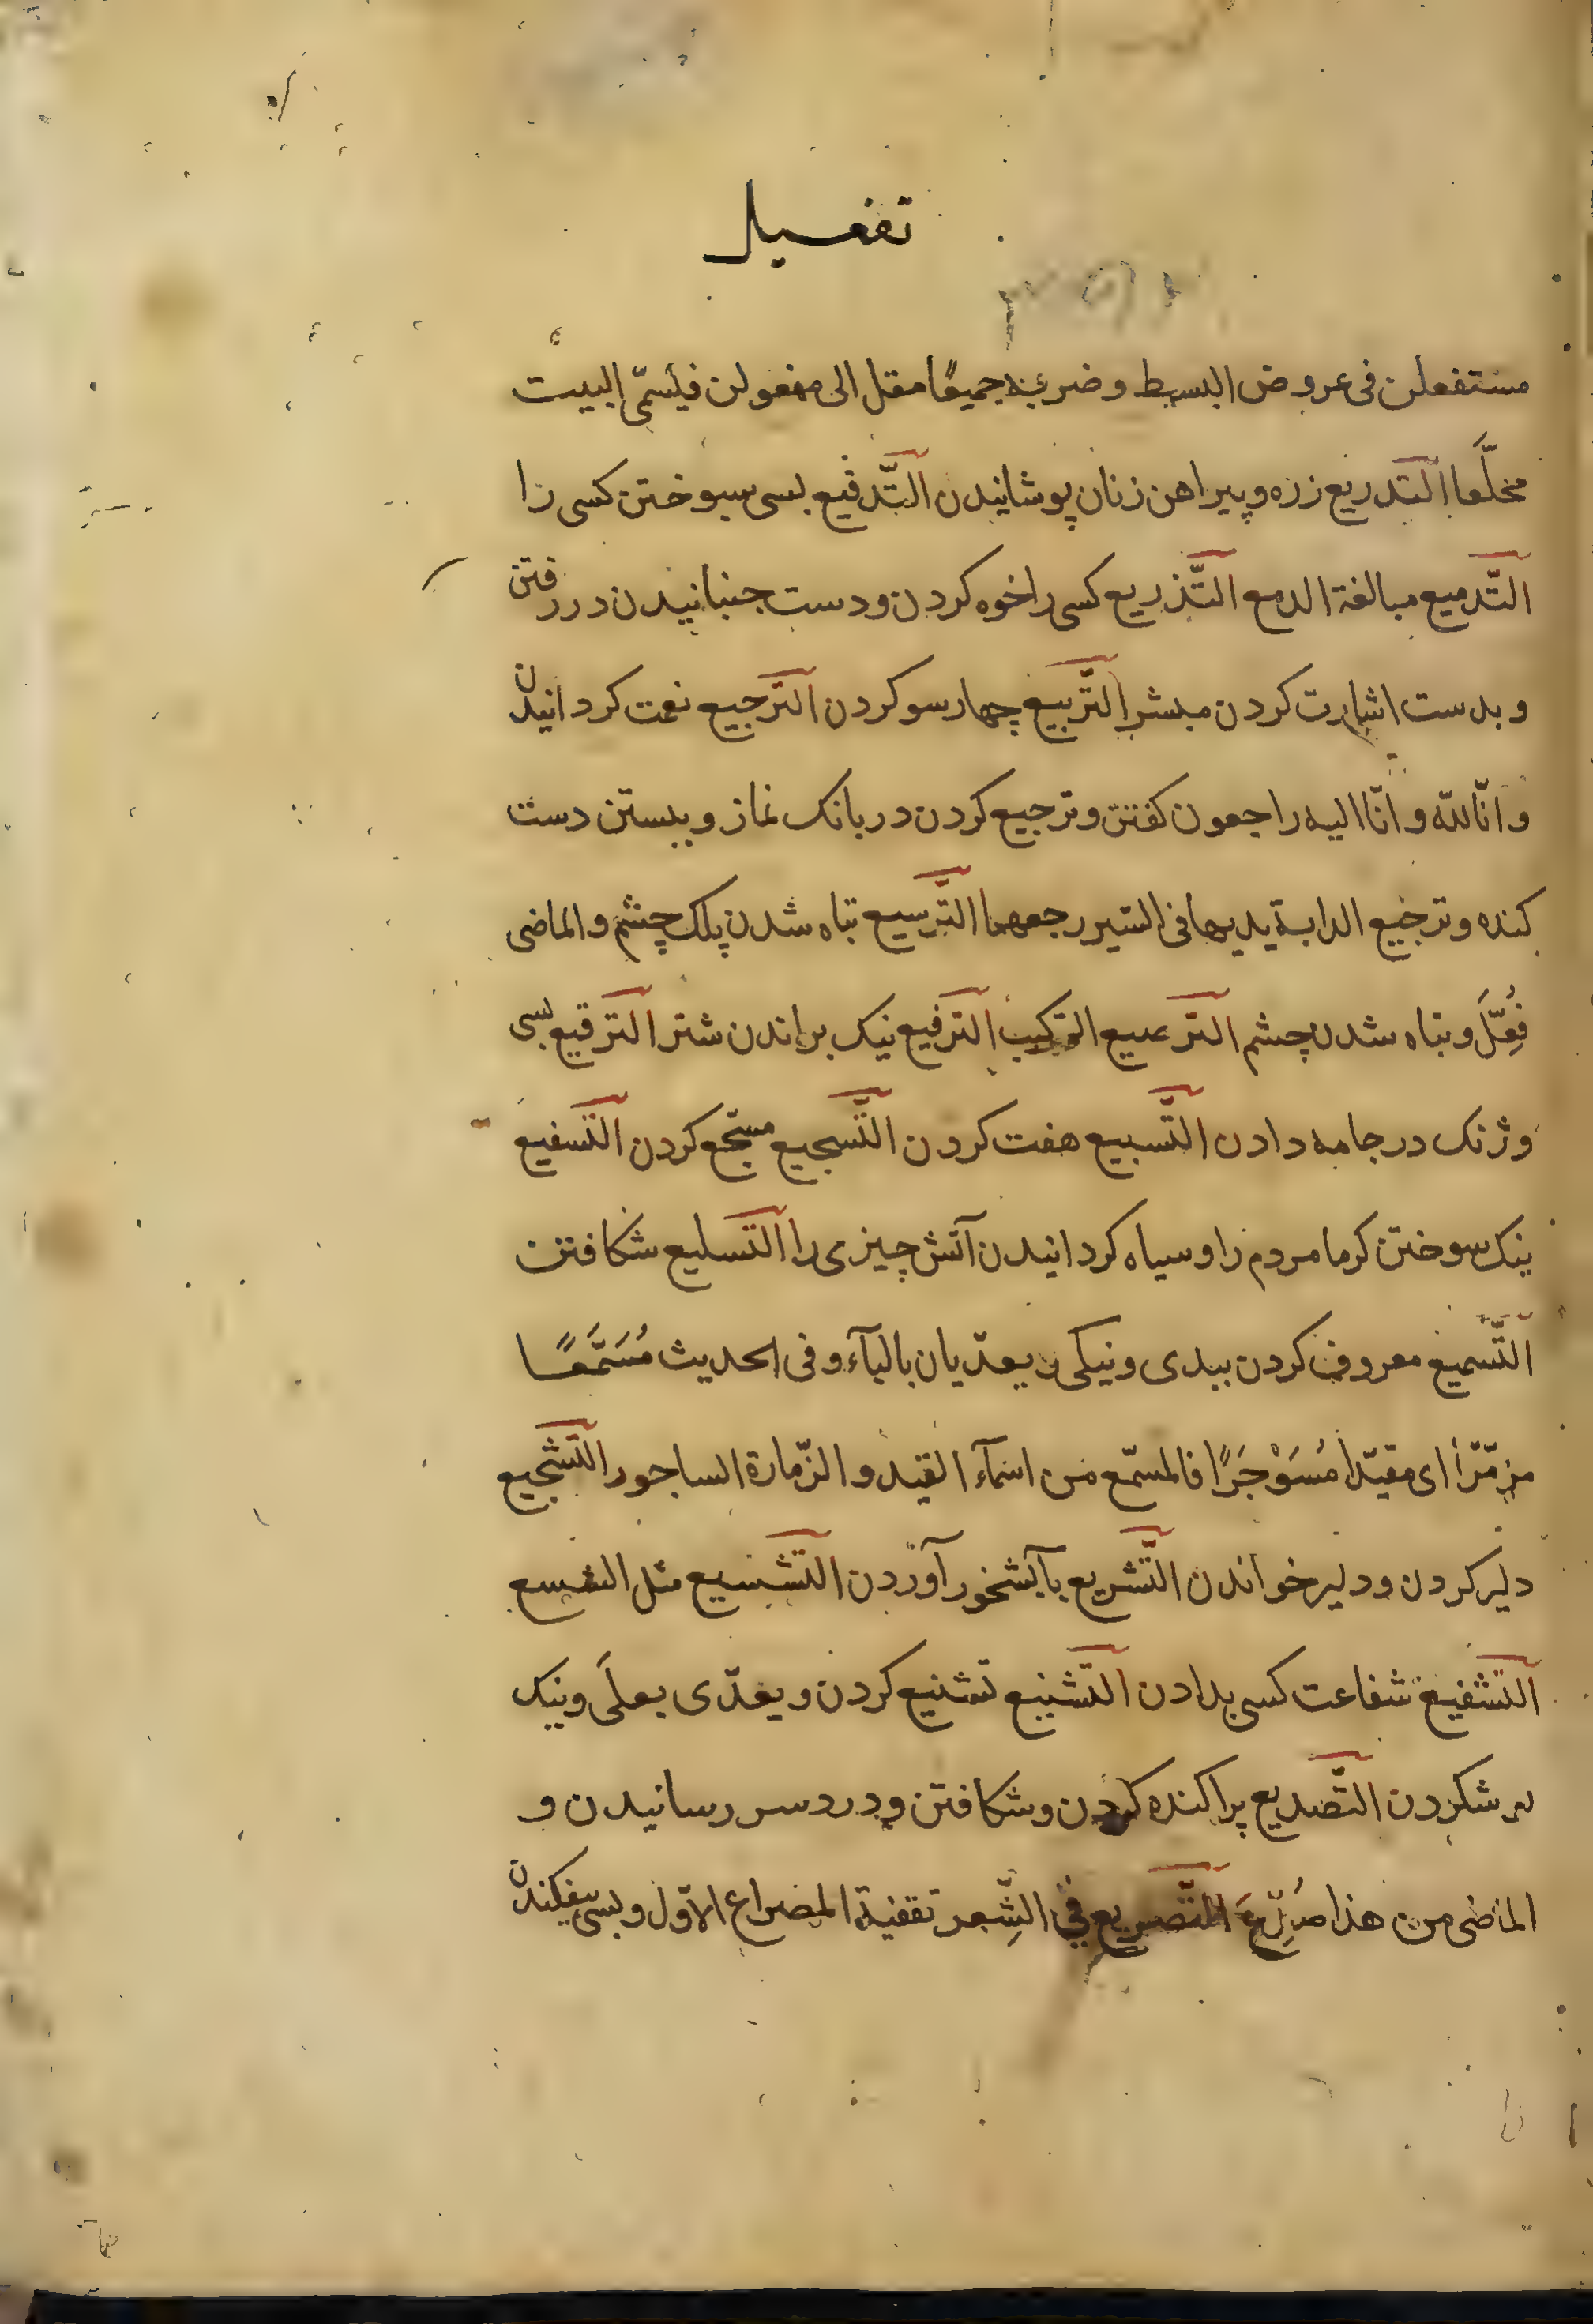 تفعيل
مستفعلن فی عروض البسيط وضربه جميعًا مقل الی مفعولن فيسمّی البيت
مخلَّعا التدريع زره وپيراهن زنان پوشانيدن التَّدفيع بسی سپوختن کسی را
التّدميع مبالغة الدمع التَّذريع کسی را خوه کردن ودست جنبانيدن در رفتن
وبدست اشارت کردن مبشر التَّربيع چهارسو کردن الترجيع نعمت کردانيدن
وانّا لله وانّا اليه راجعون کفتن وترجيع کردن در بانک نماز وببستن دست
کنده وترجيع الدابة يديها فی السير رجعهما التَّرسيع تباه شدن پلک چشم والماضی
فُعِّلَ وتباه شدن چشم الترصيع الترکيب الترفيع نيک براندن شتر الترقيع بسی
وژنک در جامه دادن التَّسبيع هفت کردن التَّسجيع مسجع کردن التّسفيع
نيک سوختن کرما مردم را وسياه کردانيدن آتش چيزی را التّسليع شکافتن
التَّسميع معروف کردن ببدی ونيکی ويعدّيان بالبآء وفی الحديث مُسَمَّعًا
مزمّرًا ای مقيّدا مُسَوْجَرًا فالمسمّع من اسمآء القيد والزّمارة الساجور التّشجيع
دلير کردن ودلير خواندن التَّشريع بآبشخور آوردن التّشسيع مثل الشسع
التّشفيع شفاعت کسی بدادن التّشنيع تشنيع کردن ويعدّی بعلَی ونيک
شکردن التَّصديع پراکنده کردن وشکافتن ودردسر رسانيدن و
الماضی من هذا صُدِّعَ التَّصريع فی الشِّعر تقفية المصراع الاوّل وبسی بيفکندن